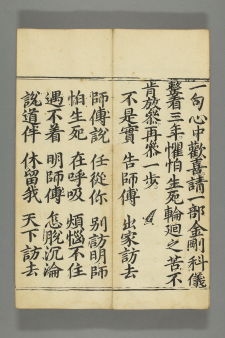 一句心中歡喜請一部金剛科儀
整看三年懼怕生死輪迴之苦不
肯放參再參一步
不是實 告師傅 出家訪去
師傅說 任從你 別訪明師
怕生死 在呼吸 煩惱不住
遇不着 明師傅 怎脫沉淪
說道伴 休留我 天下訪去